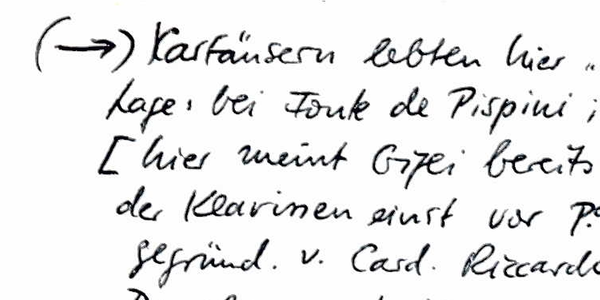 (→) Kartäusern lebten hier "
Lage: bei Fonte de Pispini ;
[ hier meint Gigei bereits
der Klarissen einst vor P.
gegründ. v. Card. Riccard